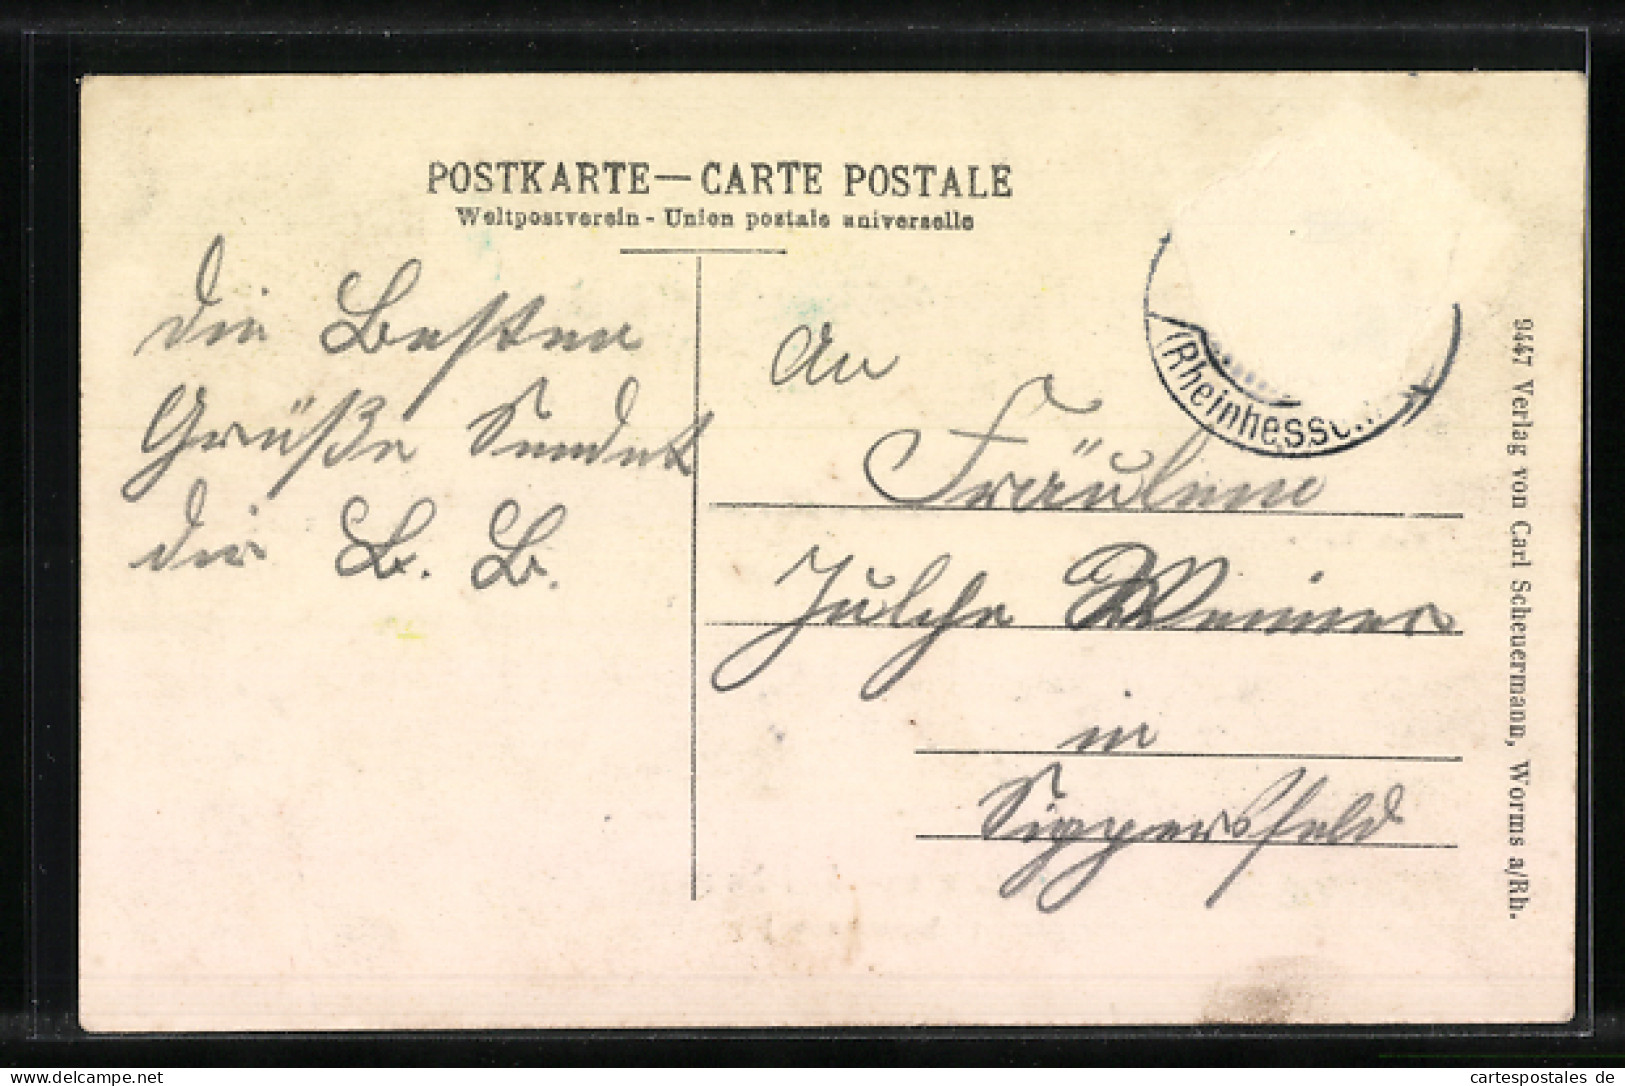 POSTKARTE — CARTE POSTALE
Weltpostverein - Union postale universelle
die Besten
Grüße Sendet
dir L. B.
An
Fräulein
Julche
in
Sippersfeld
(Rheinhessen)
9447 Verlag von Carl Scheuermann, Worms a/Rh.
myfav
cartespostales de